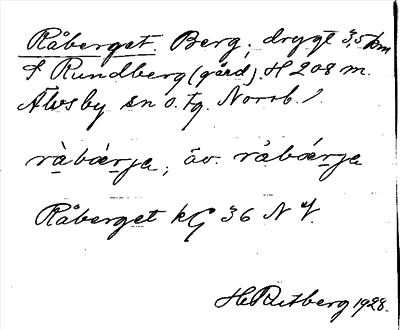 Råberget. Berg, drygt 3,5 km
f Rundberg (gård). H 208 m.
Älvsby sn o. tg. Norrb. l.
ràbárja, äv. råbárja
Råberget kG 36 N V.
H. Ritberg 1928.